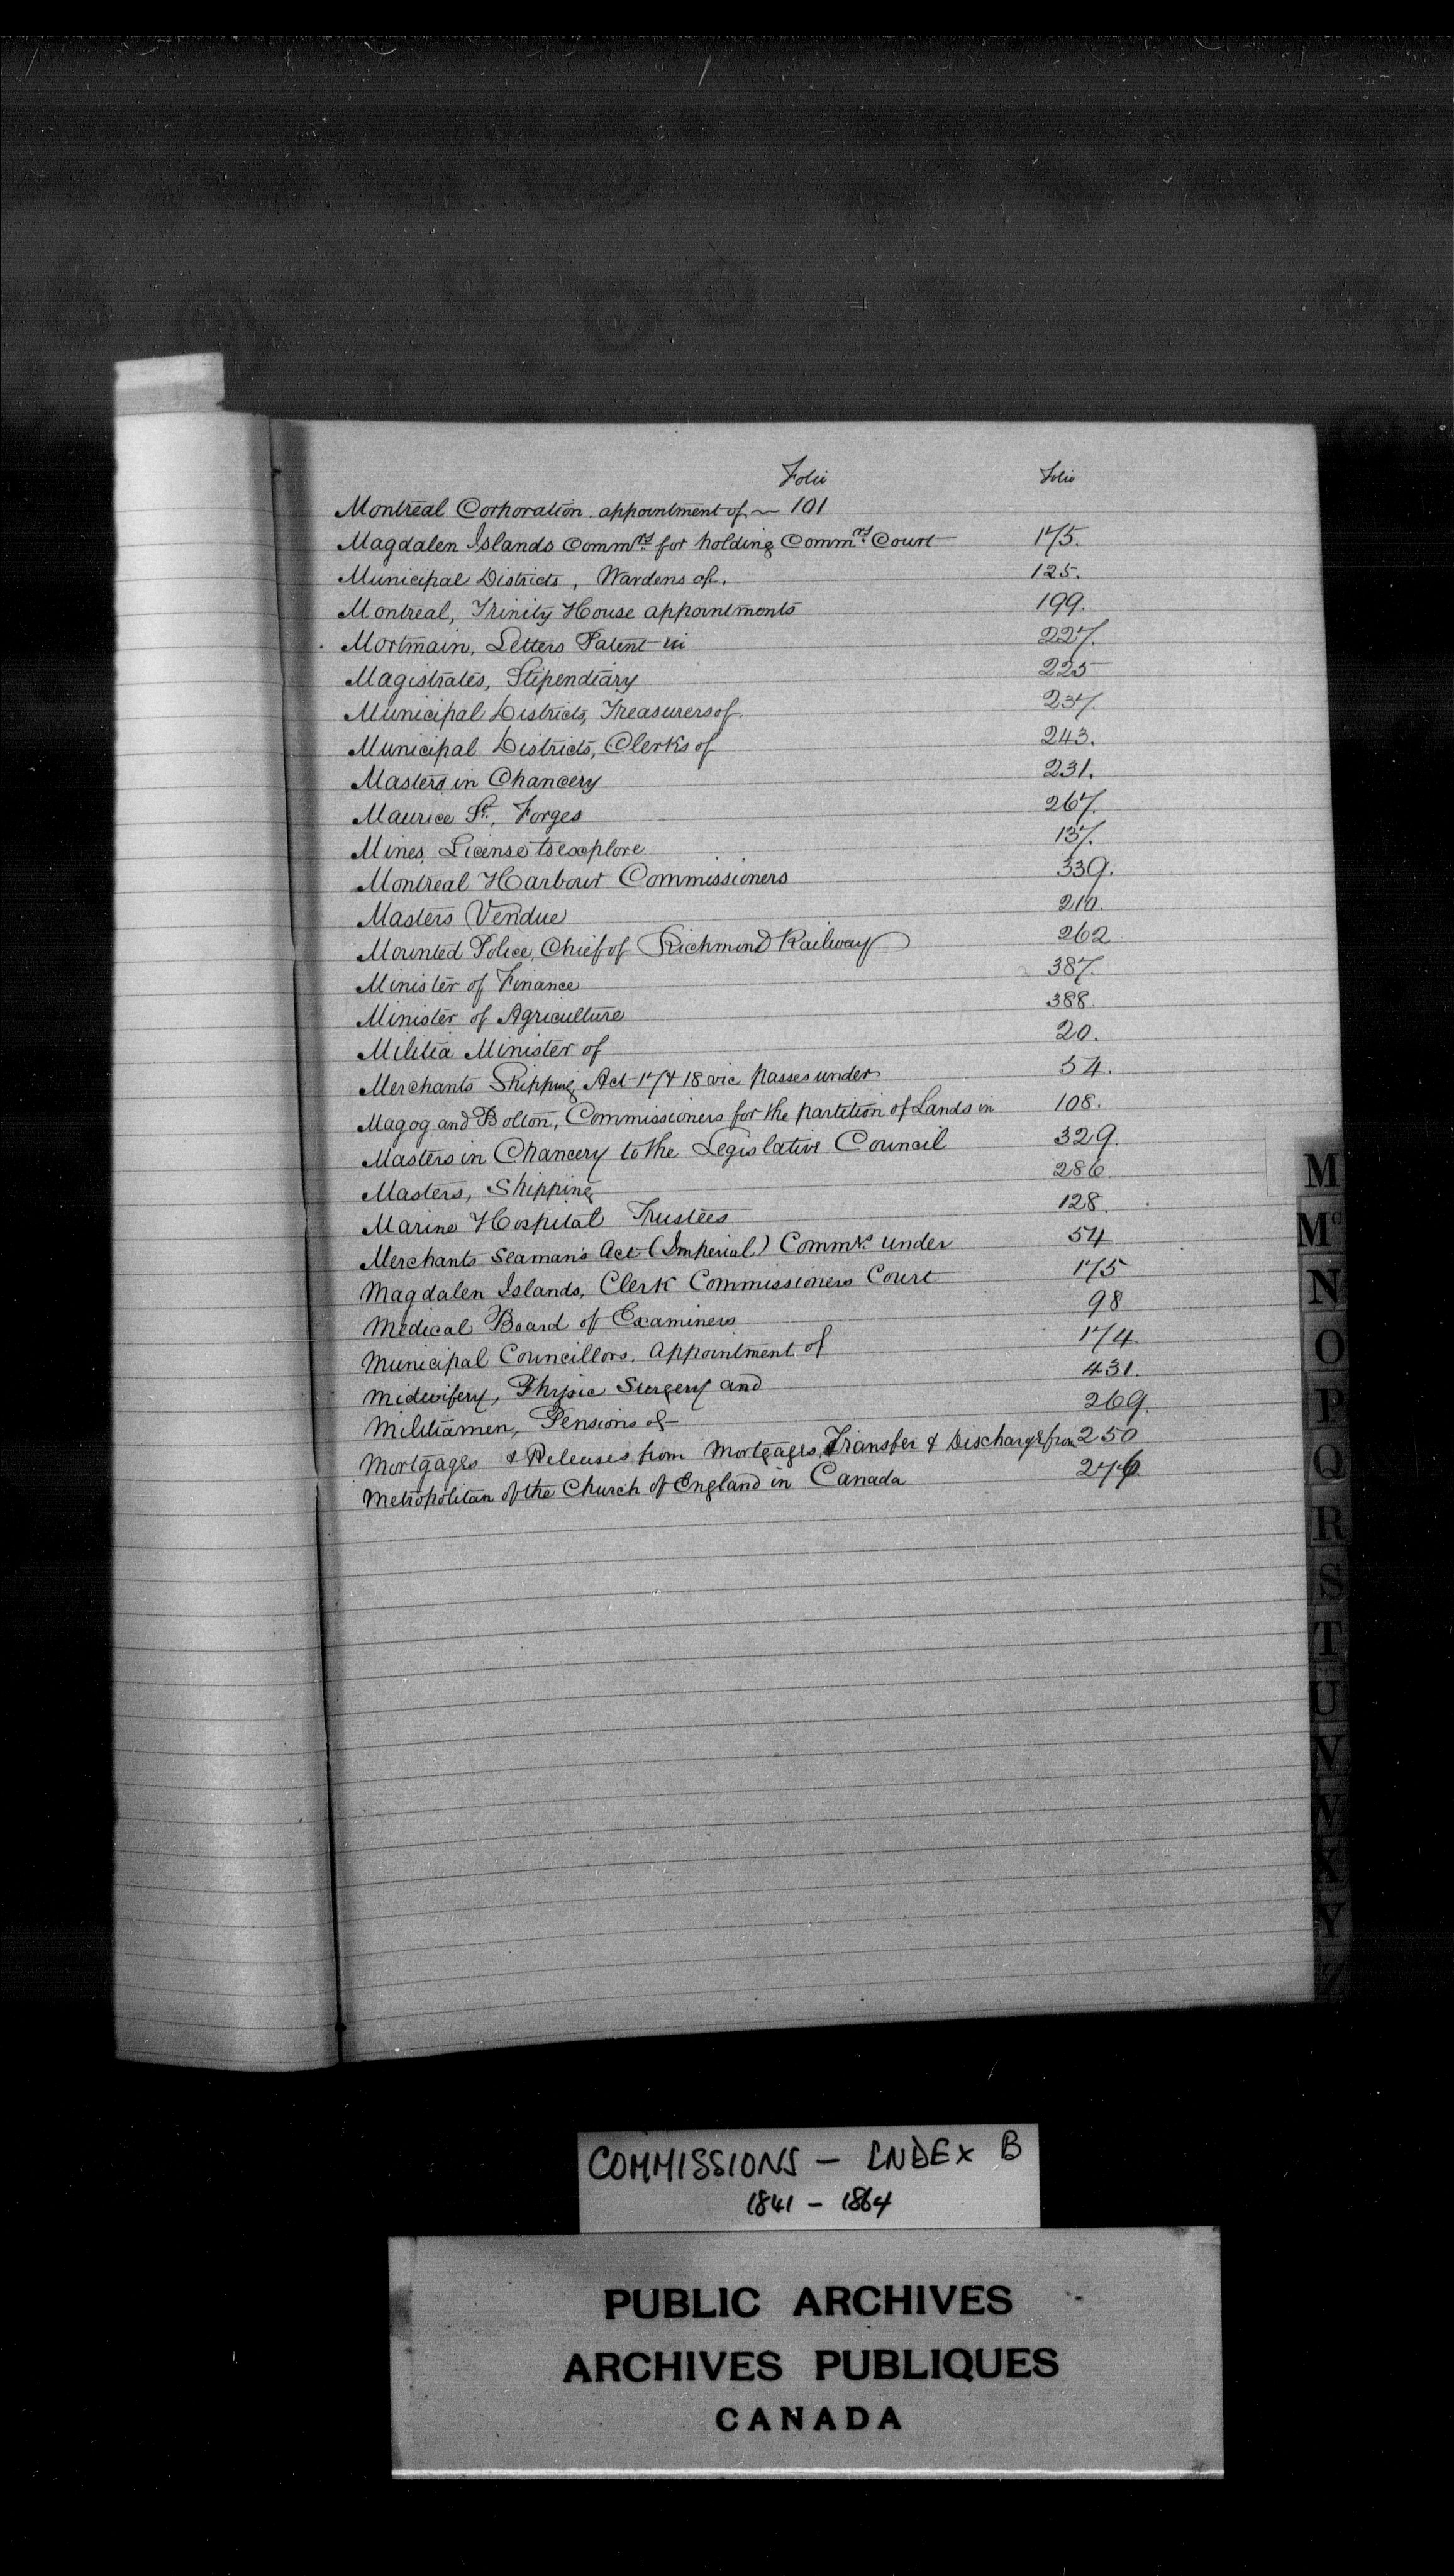 Folio Folio
Montreal Corporation. appointment of ~ 101
Magdalen Islands Commrs. for holding Commrs. Court 175.
Municipal Districts, Wardens of. 125.
Montreal, Trinity House appointments 199.
Mortmain, Letters Patent in 227.
Magistrates, Stipendiary 225
Municipal Districts, Treasurers of. 237.
Municipal Districts, Clerks of 243.
Masters in Chancery 231.
Maurice St., Forges 267.
Mines, License to explore 137.
Montreal Harbour Commissioners 339.
Masters Vendue 210.
Mounted Police, Chief of Richmond Railway 262
Minister of Finance 387.
Minister of Agriculture 388.
Militia Minister of 20.
Merchants Shipping Act 17 & 18 vic passes under 54.
Magog and Bolton, Commissioners for the partition of Lands in 108.
Masters in Chancery to the Legislative Council 329.
Masters, Shipping 286.
Marine Hospital Trustees 128.
Merchants Seaman's Act (Imperial) Commrs. under 54
Magdalen Islands, Clerk Commissioners Court 175
Medical Board of Examiners 98
Municipal Councillors. Appointment of 174
Midwifery, Physic Surgery and 431.
Militiamen, Pensions of 269.
Mortgages & Releases from Mortgages, Transfer & Discharge from 250
Metropolitan of the Church of England in Canada 276
M
Mc
N
O
P
Q
R
S
T
U
V
W
X
Y
Z
COMMISSIONS – INDEX B
1841 – 1864
PUBLIC ARCHIVES
ARCHIVES PUBLIQUES
CANADA